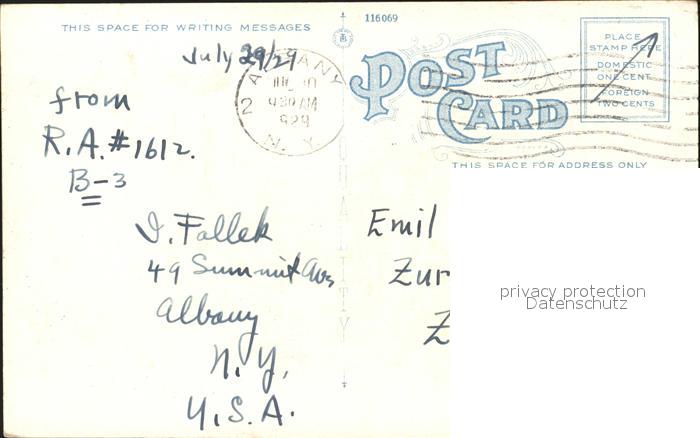 THIS SPACE FOR WRITING MESSAGES
116069
July 29/29
ALBANY
9 30 AM
1929
N. Y.
2
POST CARD
PLACE
STAMP HERE
DOMESTIC
ONE CENT
FOREIGN
TWO CENTS
THIS SPACE FOR ADDRESS ONLY
from
R.A.#1612.
B-3
I. Fallek
49 Summit Ave
Albany
N.Y.
U.S.A.
Emil
Zur
Z
privacy protection
Datenschutz